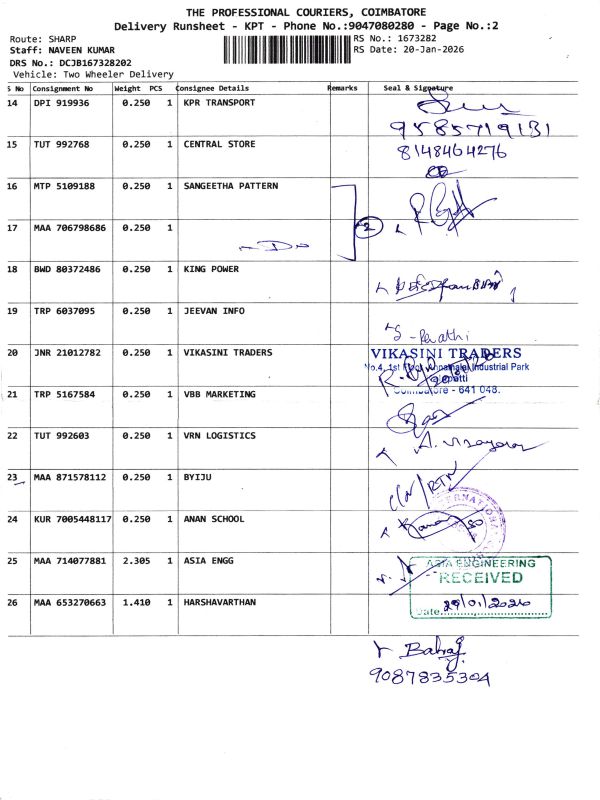 THE PROFESSIONAL COURIERS, COIMBATORE
Delivery Runsheet - KPT - Phone No.:9047080280 - Page No.:2
Route: SHARP
RS No.: 1673282
Staff: NAVEEN KUMAR
RS Date: 20-Jan-2026
DRS No.: DCJB167328202
Vehicle: Two Wheeler Delivery
S No Consignment No Weight PCS Consignee Details Remarks Seal & Signature
14 DPI 919936 0.250 1 KPR TRANSPORT
9585719131
15 TUT 992768 0.250 1 CENTRAL STORE 8148464276
16 MTP 5109188 0.250 1 SANGEETHA PATTERN
17 MAA 706798686 0.250 1
2
-Do-
18 BWD 80372486 0.250 1 KING POWER
19 TRP 6037095 0.250 1 JEEVAN INFO
20 JNR 21012782 0.250 1 VIKASINI TRADERS VIKASINI TRADERS
No.4, 1st Floor, Annathalai Industrial Park
Coimbatore - 641 048.
21 TRP 5167584 0.250 1 VBB MARKETING
22 TUT 992603 0.250 1 VRN LOGISTICS
23 MAA 871578112 0.250 1 BYIJU
24 KUR 7005448117 0.250 1 ANAN SCHOOL
25 MAA 714077881 2.305 1 ASIA ENGG ASIA ENGINEERING
RECEIVED
26 MAA 653270663 1.410 1 HARSHAVARTHAN Date 29/01/2026
Balraj
9087835304